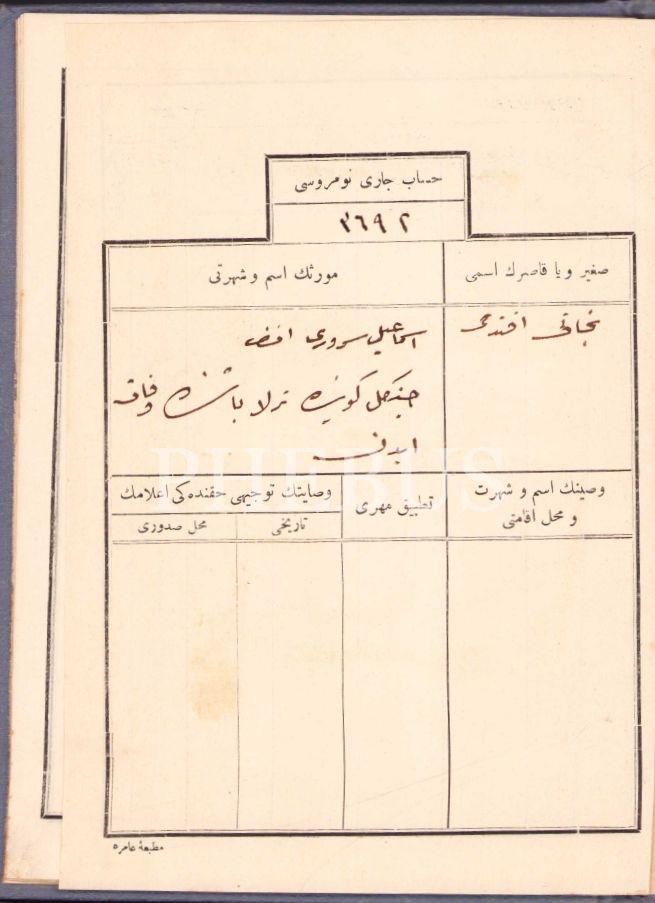 حساب جاری نومروسی
٣٦٩٢
صغیر ویا قاصرك اسمی
مورثك اسم و شهرتی
نجاتی افندی
اسماعیل سروری افندی
چنکل کوینده ترلا باشنده وفات
ایدن
وصینك اسم و شهرت
و محل اقامتی
تطبیق مهری
وصایتك توجیهی حقنده کی اعلامك
تاریخی
محل صدوری
مطبعهٔ عامره
PHEBUS